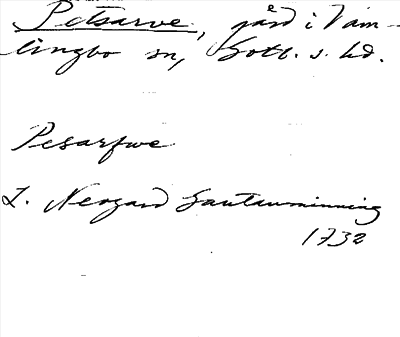 Petsarve, gård i Väm-
lingbo sn, Gotl. s. hd.
Pesarfwe
L. Neogard Gautauminning
1732